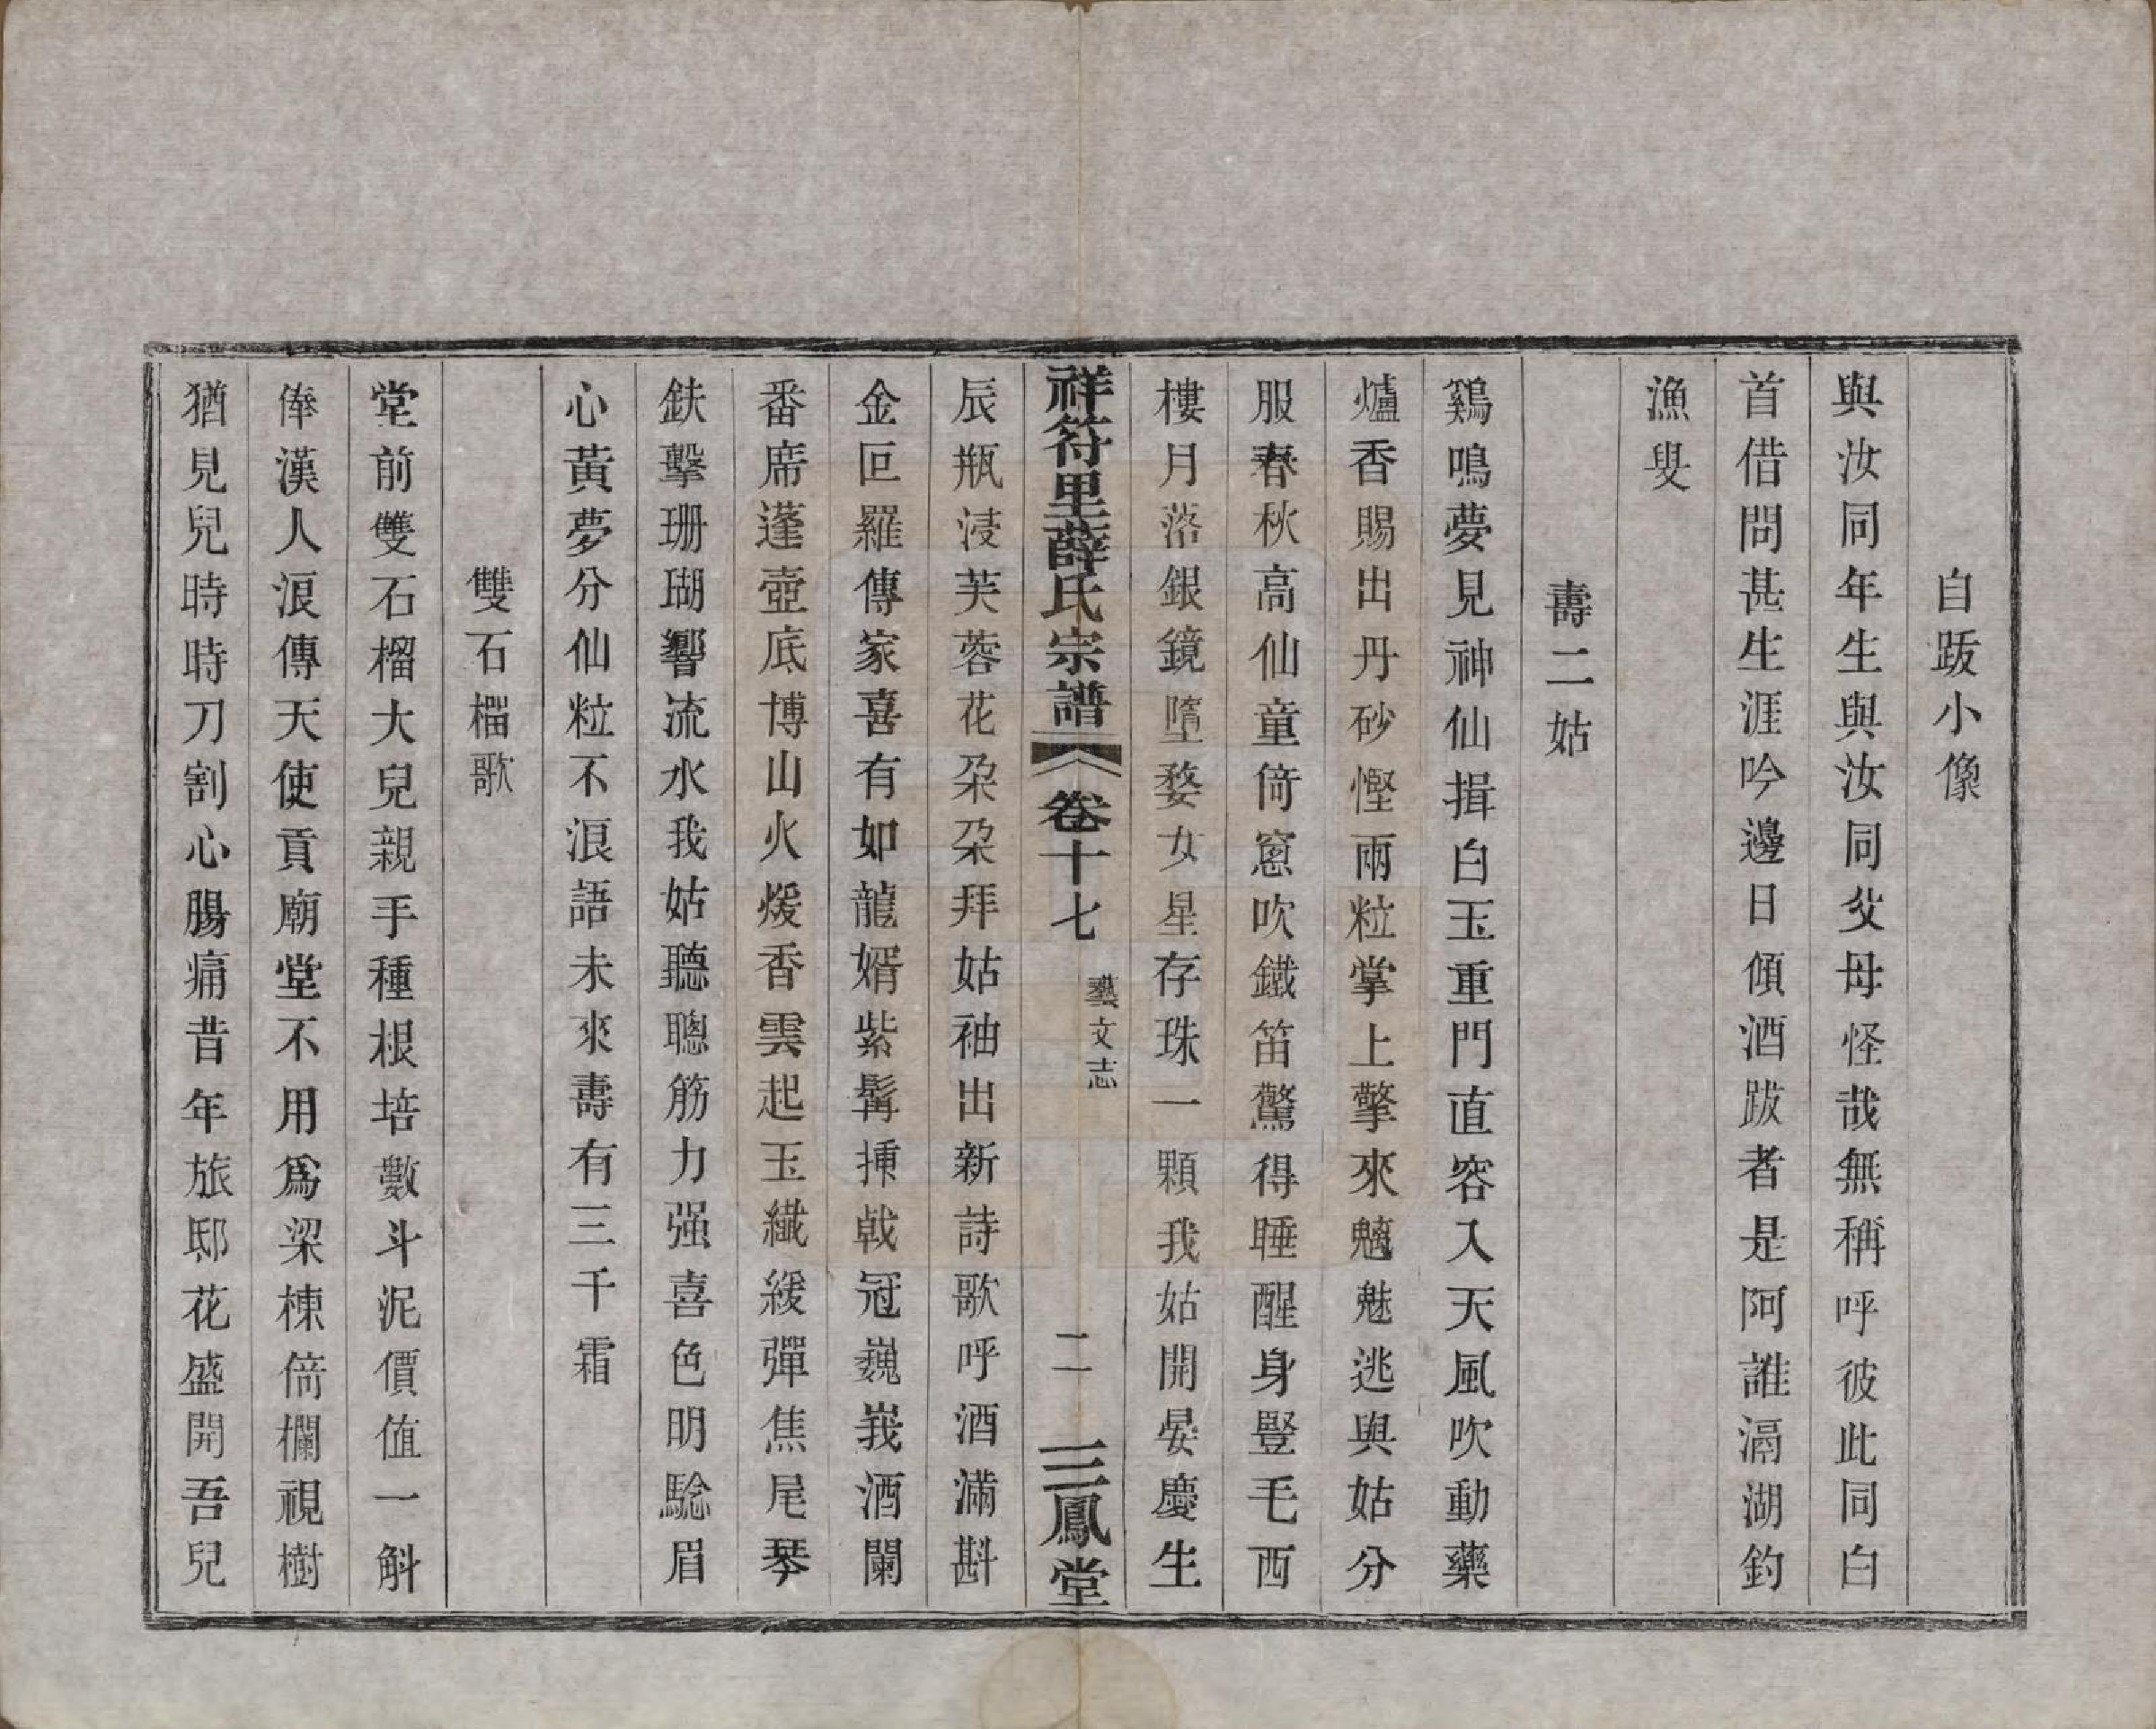 自跋小像
與汝同年生與汝同父母怪哉無稱呼彼此同白
首借問甚生涯吟邊日傾酒跋者是阿誰滆湖釣
漁叟
壽二姑
鷄鳴夢見神仙揖白玉重門直容入天風吹動藥
爐香賜出丹砂慳兩粒掌上擎來魑魅逃與姑分
服春秋高仙童倚窻吹鐵笛驚得睡醒身豎毛西
樓月落銀鏡墮婺女星存珠一顆我姑開晏慶生
祥符里薛氏宗譜 卷十七 藝文志 二 三鳳堂
辰瓶浸芙蓉花朶朶拜姑袖出新詩歌呼酒滿斟
金叵羅傳家喜有如龍婿紫髯揀戟冠巍峩酒闌
番席蓬壺底博山火煖香雲起玉纖緩彈焦尾琴
鈇擊珊瑚響流水我姑聽聰筋力强喜色明騐眉
心黃夢分仙粒不浪語未來壽有三千霜
雙石榴歌
堂前雙石榴大兒親手種根培數斗泥價值一斛
俸漢人浪傳天使貢廟堂不用爲梁棟倚欄視樹
猶見兒時時刀割心腸痛昔年旅邸花盛開吾兒